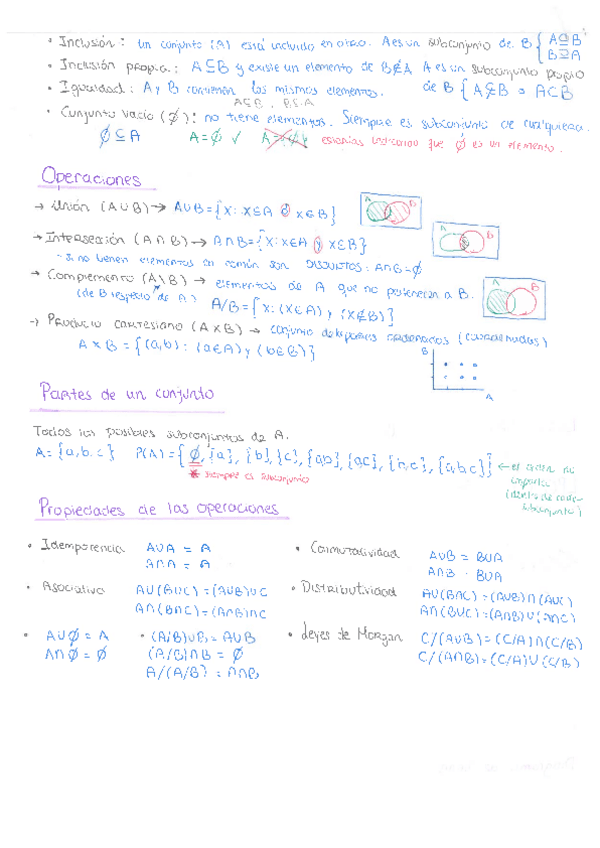 • Inclusión: un conjunto (A) está incluido en otro. A es un subconjunto de B { A⊆B
B⊇A
• Inclusión propia: A⊆B y existe un elemento de B∉A A es un subconjunto propio
de B { A⊊B o A⊂B
• Igualdad: A y B contienen los mismos elementos.
A⊆B, B⊆A
• Conjunto vacío (∅): no tiene elementos. Siempre es subconjunto de cualquiera.
∅⊆A A=∅ ✓ estarías indicando que ∅ es un elemento.
Operaciones
→ Unión (A∪B) → A∪B={x: x∈A o x∈B}
A B
→ Intersección (A∩B) → A∩B={x: x∈A y x∈B}
A B
- si no tienen elementos en común son DISJUNTOS: A∩B=∅
→ Complemento (A\B) → elementos de A que no pertenecen a B.
(de B respecto de A) A/B={x: (x∈A) y (x∉B)}
A B
→ Producto cartesiano (A×B) → conjunto de pares ordenados (coordenadas)
A×B={(a,b): (a∈A) y (b∈B)}
B
A
Partes de un conjunto
Todos los posibles subconjuntos de A.
A={a,b,c} P(A)={∅, {a}, {b}, {c}, {a,b}, {a,c}, {b,c}, {a,b,c}} ← el orden no
importa
(dentro de cada
subconjunto)
* siempre es subconjunto
Propiedades de las operaciones
• Idempotencia A∪A = A
A∩A = A
• Conmutatividad A∪B = B∪A
A∩B = B∪A
• Asociativa A∪(B∪C)=(A∪B)∪C
A∩(B∩C)=(A∩B)∩C
• Distributividad A∪(B∩C)=(A∪B)∩(A∪C)
A∩(B∪C)=(A∩B)∪(A∩C)
• A∪∅ = A
A∩∅ = ∅
• (A/B)∪B = A∪B
(A/B)∩B = ∅
A/(A/B) = A∩B
• Leyes de Morgan C/(A∪B)=(C/A)∩(C/B)
C/(A∩B)=(C/A)∪(C/B)